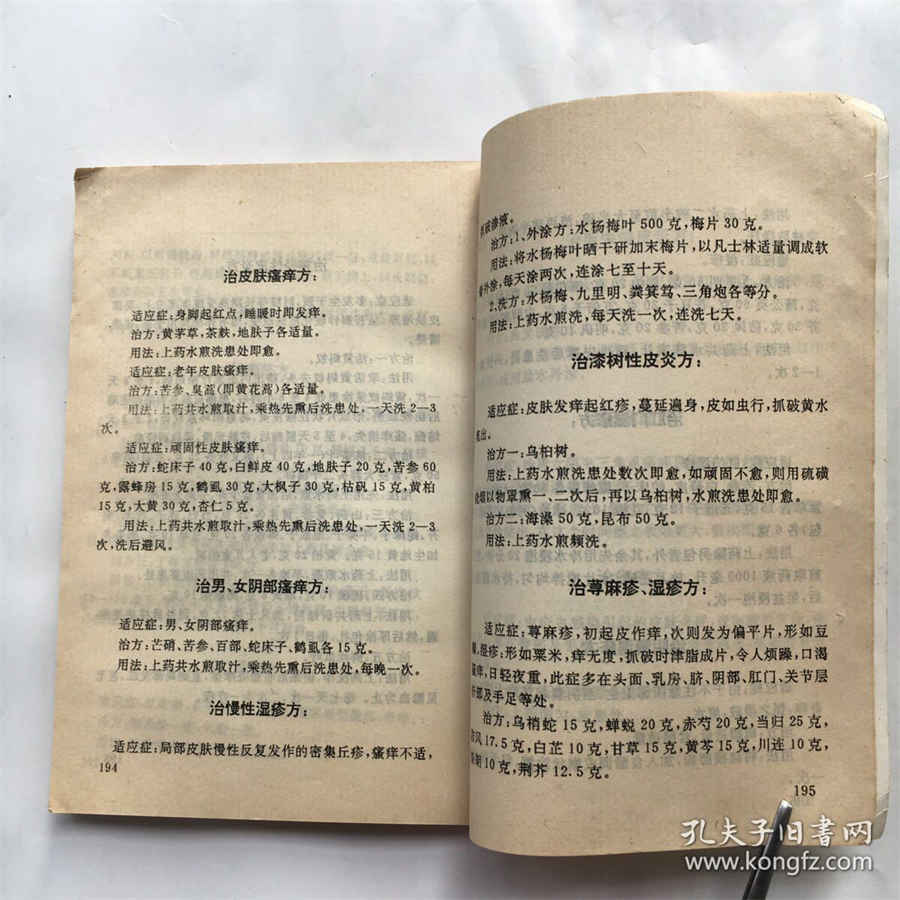 治皮肤瘙痒方：
适应症：身脚起红点，睡暖时即发痒。
治方：黄茅草，茶麸，地肤子各适量。
用法：上药水煎洗患处即愈。
适应症：老年皮肤瘙痒。
治方：苦参、臭蒿（即黄花蒿）各适量。
用法：上药共水煎取汁，乘热先熏后洗患处，一天洗2—3
次。
适应症：顽固性皮肤瘙痒。
治方：蛇床子40克，白鲜皮40克，地肤子20克，苦参60
克，露蜂房15克，鹤虱30克，大枫子30克，枯矾15克，黄柏
15克，大黄30克，杏仁5克。
用法：上药共水煎取汁，乘热先熏后洗患处，一天洗2—3
次，洗后避风。
治男、女阴部瘙痒方：
适应症：男、女阴部瘙痒。
治方：芒硝、苦参、百部、蛇床子、鹤虱各15克。
用法：上药共水煎取汁，乘热先熏后洗患处，每晚一次。
治慢性湿疹方：
适应症：局部皮肤慢性反复发作的密集丘疹，瘙痒不适，
194
液渗液。
治方：1、外涂方：水杨梅叶500克，梅片30克。
用法：将水杨梅叶晒干研加末梅片，以凡士林适量调成软
外涂，每天涂两次，连涂七至十天。
2、洗方：水杨梅、九里明、粪箕笃、三角炮各等分。
用法：上药水煎洗，每天洗一次，连洗七天。
治漆树性皮炎方：
适应症：皮肤发痒起红疹，蔓延遍身，皮如虫行，抓破黄水
出。
治方一：乌桕树。
用法：上药水煎洗患处数次即愈，如顽固不愈，则用硫磺
以物罩熏一、二次后，再以乌桕树，水煎洗患处即愈。
治方二：海藻50克，昆布50克。
用法：上药水煎频洗。
治荨麻疹、湿疹方：
适应症：荨麻疹，初起皮作痒，次则发为偏平片，形如豆
，湿疹：形如粟米，痒无度，抓破时津脂成片，令人烦躁，口渴
痒，日轻夜重，此症多在头面、乳房、脐、阴部、肛门、关节层
部及手足等处。
治方：乌梢蛇15克，蝉蜕20克，赤芍20克，当归25克，
风17.5克，白芷10克，甘草15克，黄芩15克，川连10克，
10克，荆芥12.5克。
195
孔夫子旧書网
www.kongfz.com